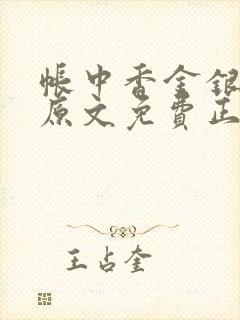 帐中香金银
原文免费正
王占奎